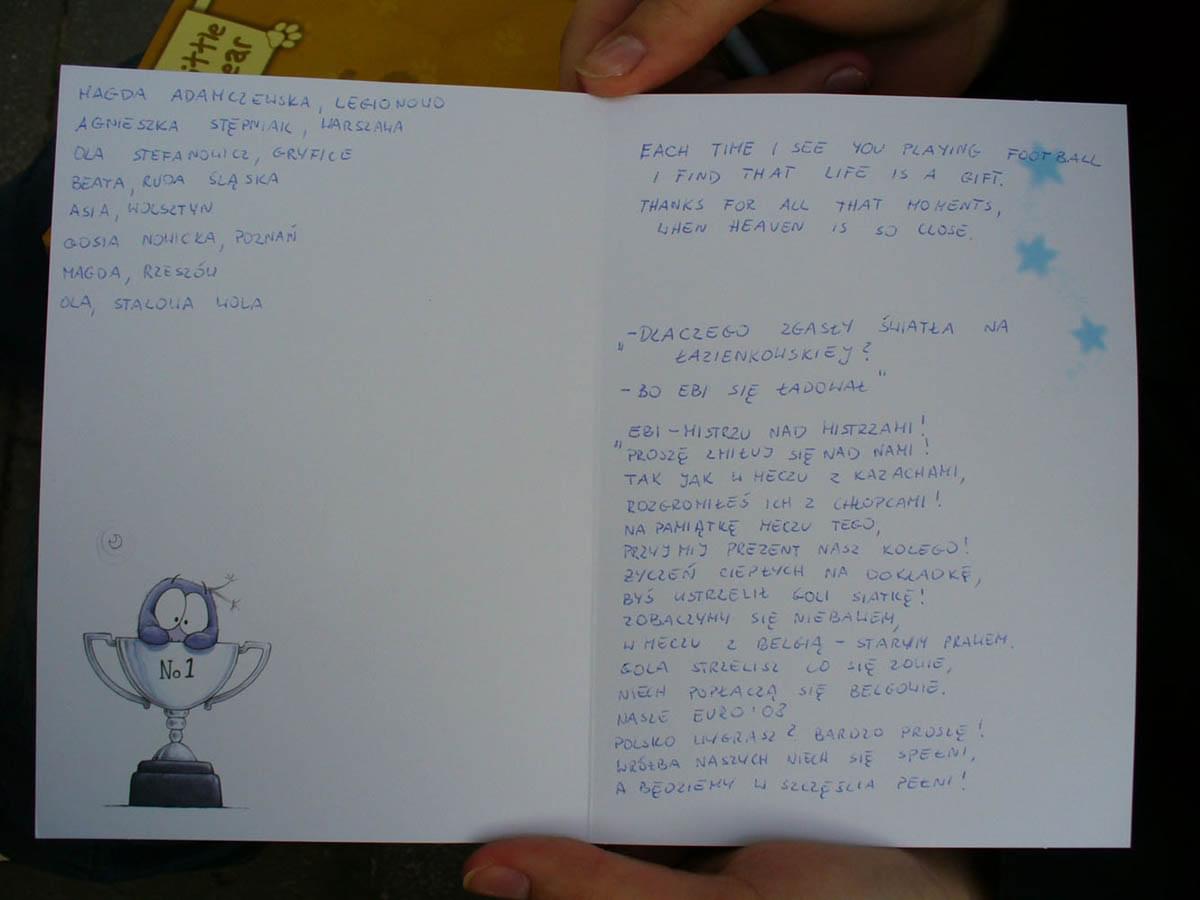 ittle
ear
MAGDA ADAMCZEWSKA, LEGIONOWO
AGNIESZKA STĘPNIAK, WARSZAWA
OLA STEFANOWICZ, GRYFICE
BEATA, RUDA ŚLĄSKA
ASIA, WOLSZTYN
GOSIA NOWICKA, POZNAŃ
MAGDA, RZESZÓW
OLA, STALOWA WOLA
No1
EACH TIME I SEE YOU PLAYING FOOTBALL
I FIND THAT LIFE IS A GIFT.
THANKS FOR ALL THAT MOMENTS,
WHEN HEAVEN IS SO CLOSE.
„-DLACZEGO ZGASŁY ŚWIATŁA NA
ŁAZIENKOWSKIEJ?
- BO EBI SIĘ ŁADOWAŁ"
EBI - MISTRZU NAD MISTRZAMI!
"PROSZĘ ZMIŁUJ SIĘ NAD NAMI!
TAK JAK W MECZU Z KAZACHAMI,
ROZGROMIŁEŚ ICH Z CHŁOPCAMI!
NA PAMIĄTKĘ MECZU TEGO,
PRZYJMIJ PREZENT NASZ KOLEGO!
ŻYCZEŃ CIEPŁYCH NA DOKŁADKĘ,
BYŚ USTRZELIŁ GOLI SIATKĘ!
ZOBACZYMY SIĘ NIEBAWEM,
W MECZU Z BELGIĄ - STARYM PRAWEM.
GOLA STRZELISZ CO SIĘ ZOWIE,
NIECH POPŁACZĄ SIĘ BELGOWIE.
NASZE EURO '08
POLSKO WYGRASZ? BARDZO PROSZĘ!
WRÓŻBA NASZYCH NIECH SIĘ SPEŁNI,
A BĘDZIEMY W SZCZĘŚCIA PEŁNI!